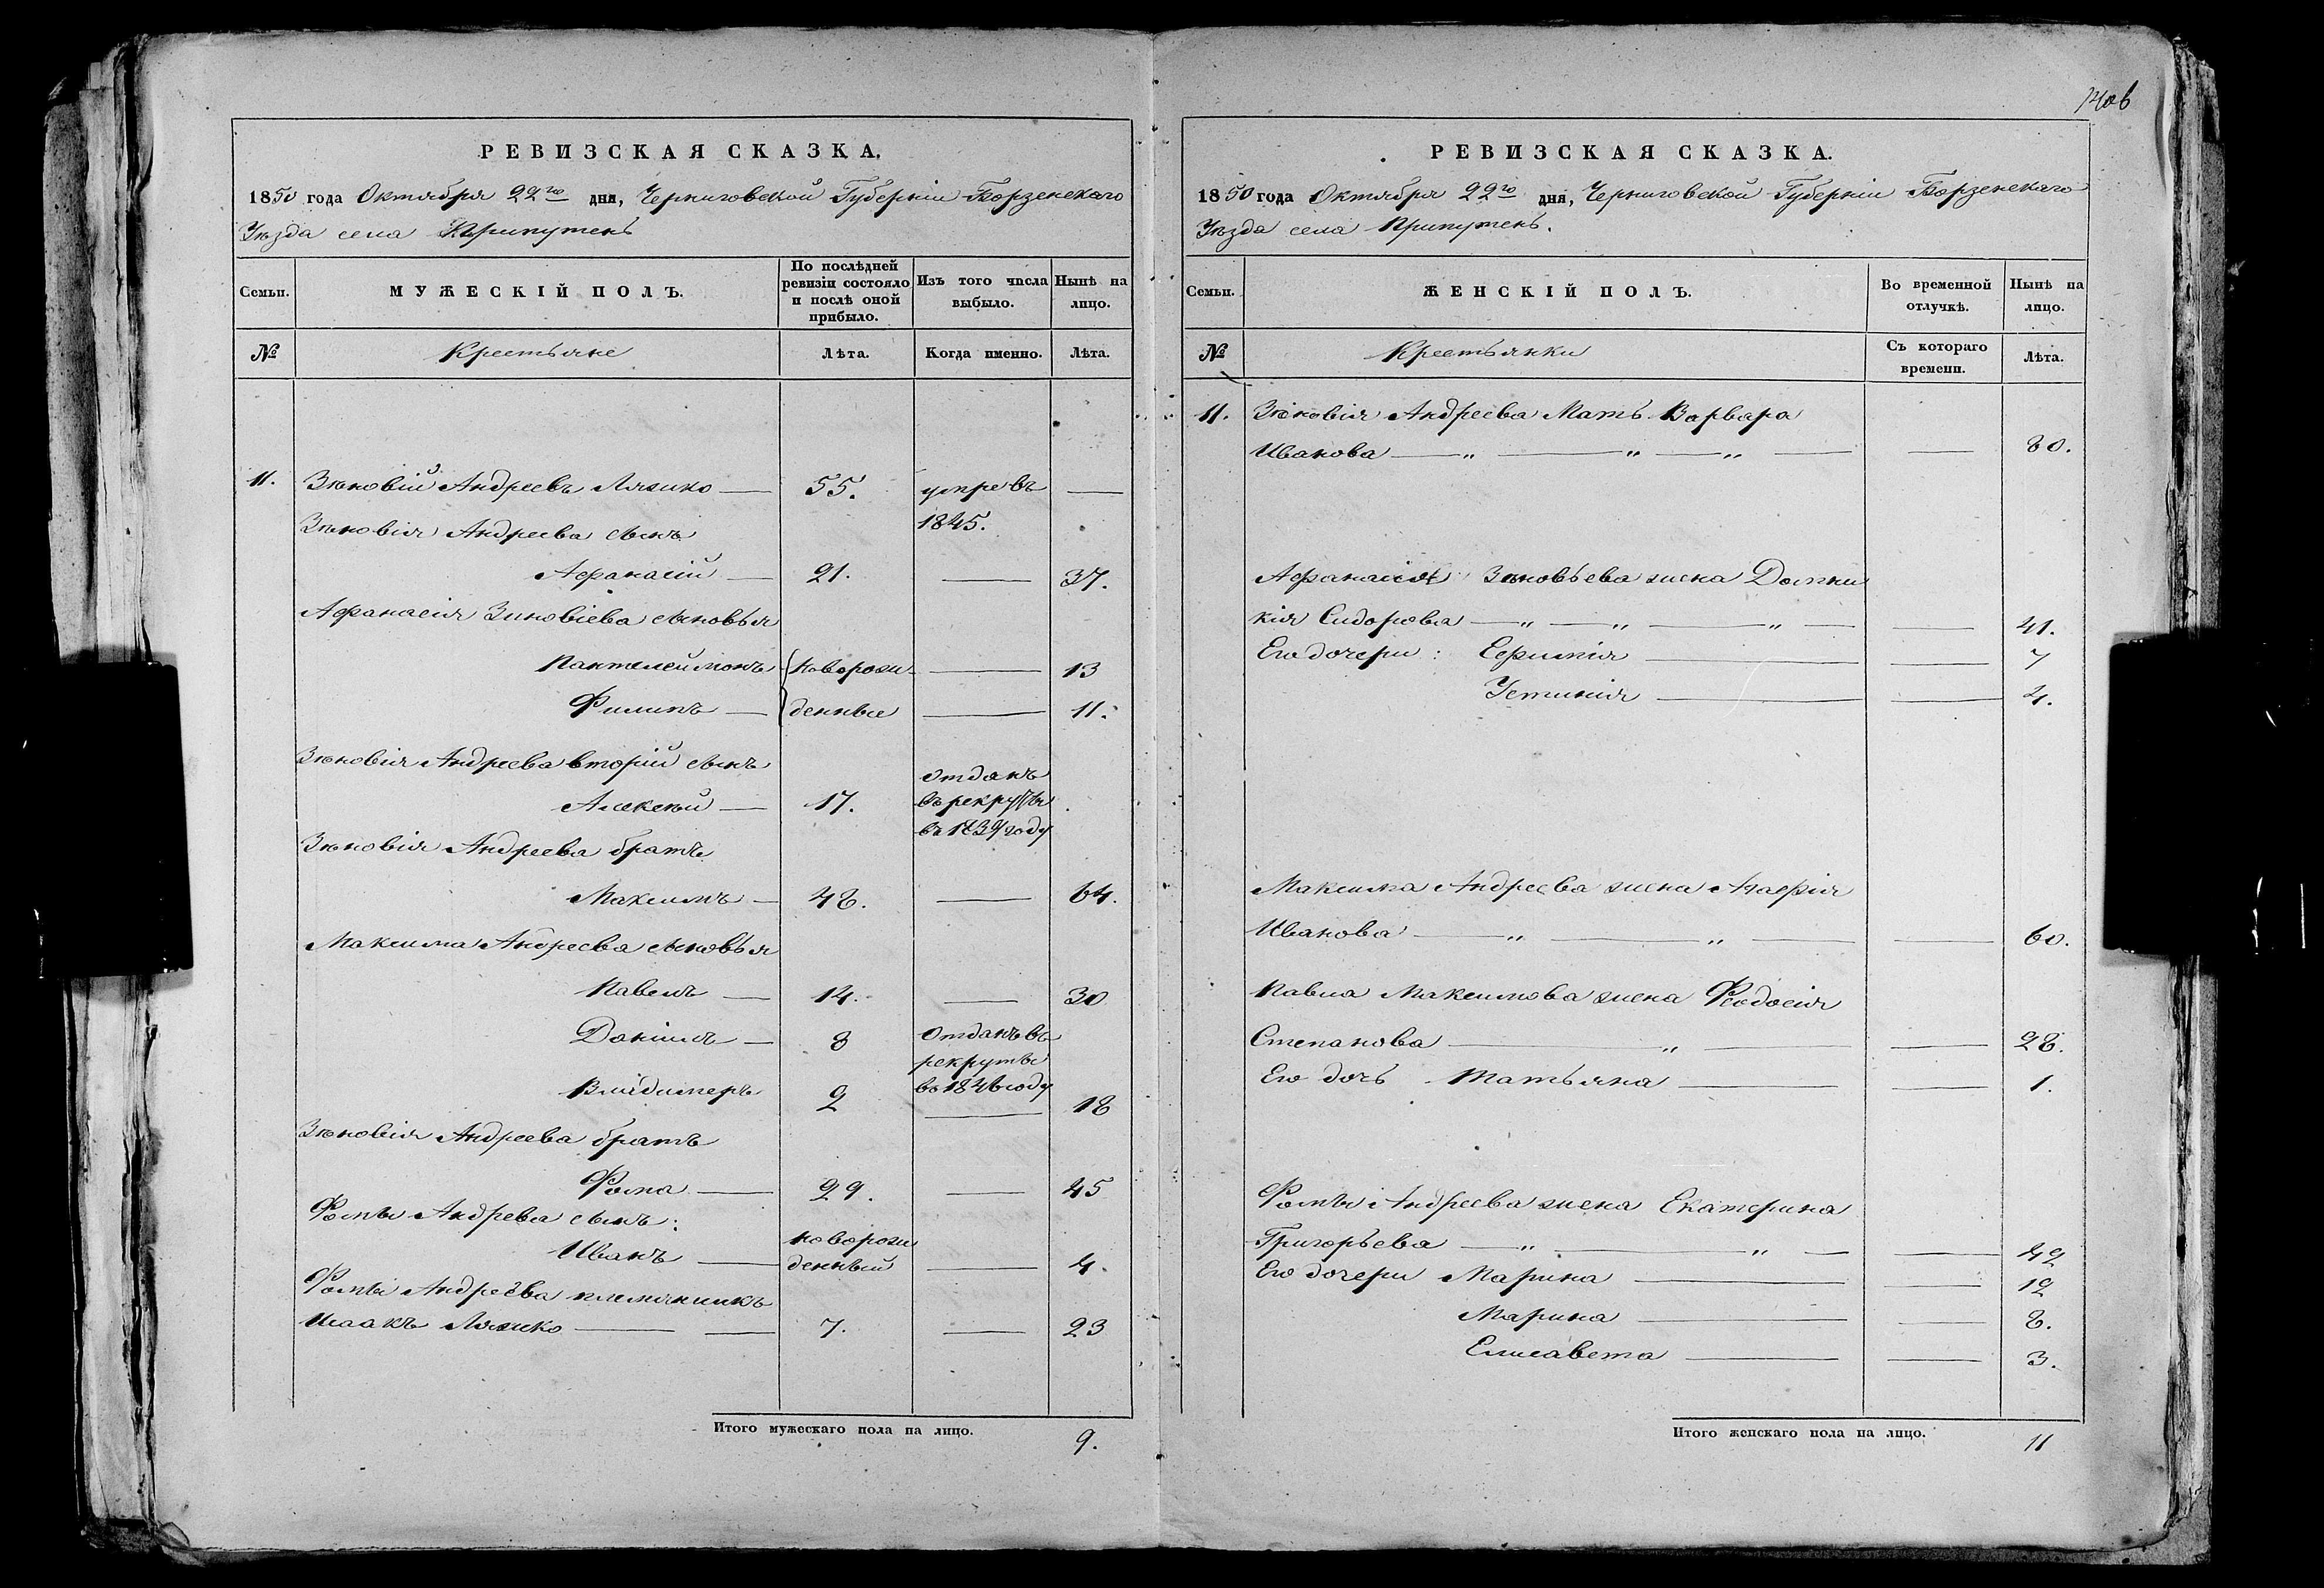 1406
РЕВИЗСКАЯ СКАЗКА.
1850 года Октября 22го дня, Черниговской Губерніи Борзенскаго
Уѣзда села Припутень
Семьи.
МУЖЕСКІЙ ПОЛЪ.
По послѣдней ревизіи состояло и послѣ оной прибыло.
Изъ того числа выбыло.
Нынѣ на лицо.
№
Крестьяне
Лѣта.
Когда именно.
Лѣта.
11. Зѣновій Андреевъ Ляшко — 55. умре въ —
Зѣновія Андреева сынъ 1845.
Афанасій — 21. — 37.
Афанасія Зиновіева сыновья
Пантелеймонъ новорож- — 13
Филипъ — денные — 11.
Зѣновія Андреева вторій сынъ отданъ
Алексѣй — 17. въ рекруты
въ 1839 году
Зѣновія Андреева братъ
Максимъ — 48. — 64.
Максима Андреева сыновья
Павелъ — 14. — 30
Даніилъ — 8 Отданъ въ
рекруты
Владимеръ 2 въ 1846 году 18
Зѣновія Андреева братъ
Фома — 29. — 45
Фомы Андрева сынъ: новорож
Иванъ — денный — 4.
Фомы Андреева племянникъ
Исаакъ Ляшко — — 7. — 23
Итого мужескаго пола на лицо. 9.
РЕВИЗСКАЯ СКАЗКА.
1850 года Октября 22го дня, Черниговской Губерніи Борзенскаго
Уѣзда села Припутень.
Семьи.
ЖЕНСКІЙ ПОЛЪ.
Во временной отлучкѣ.
Нынѣ на лицо.
№
Крестьянки
Съ котораго времени.
Лѣта.
11. Зѣновія Андреева Мать Варвара
Иванова — „ — „ — „ — — 80.
Афанасія Зѣновьева жена Домни
кія Сидорова — „ — „ — „ — — 41.
Его дочери: Ефимія — — 7
Устинія — — 4.
Максима Андреева жена Агафія
Иванова — „ — „ — — 60.
Павла Максимова жена Феодосія
Степанова — „ — — 28.
Его дочь Татьяна — — 1.
Фомы Андреева жена Екатерина
Григорьева — „ — „ — — 42
Его дочери Марина — — 12
Марина — — 8.
Елисавета — — 3.
Итого женскаго пола на лицо. 11